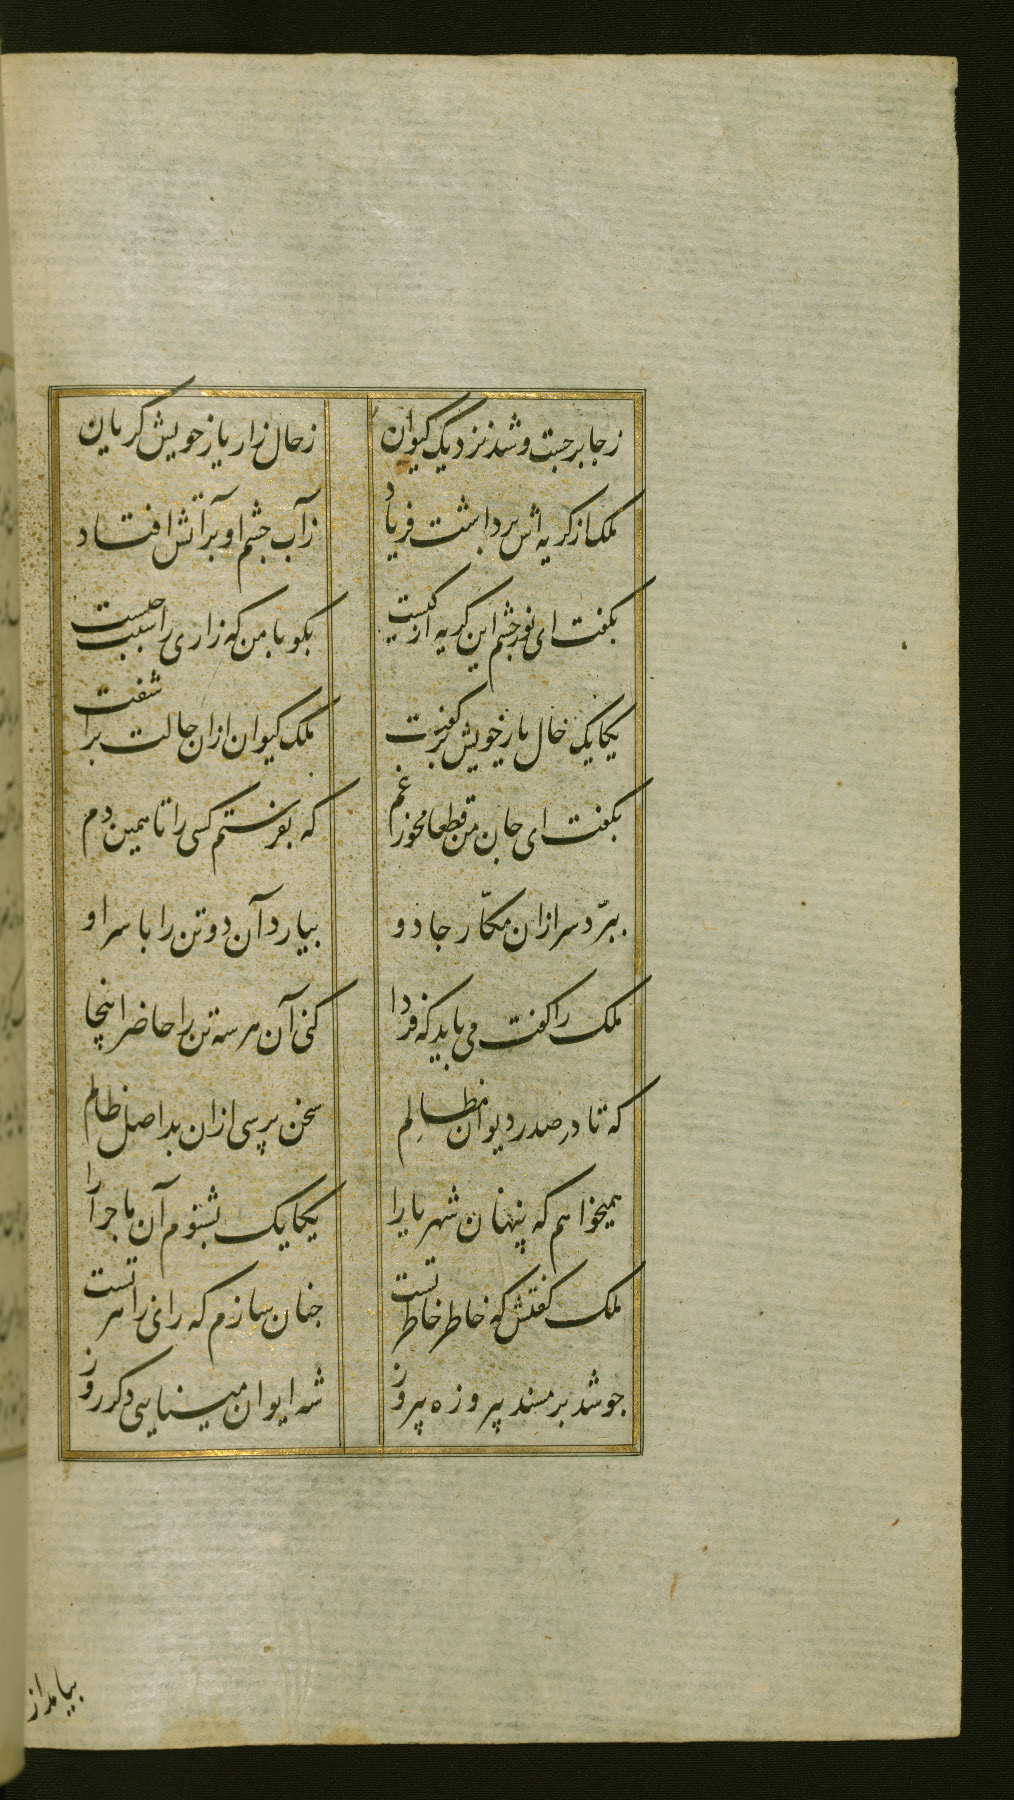 زجا برجست و شد نزدیک کیوان
زحال زار یار خویش کریان
ملک از کریه اش برداشت فریاد
زآب چشم او بر آتش افتاد
بکفت ای نور چشم این کریه از کیست
بکو با من که زاری را سبب چیست
یکایک حال یار خویش
ملک کیوان ازان حالت برآشفت
بکفت ای جان من قطعا مخور غم
که بفرستم کسی را تا همین دم
ببرّد سر ازان مکّار جادو
بیارد آن دو تن را با سر او
ملک را کفت می باید که فردا
کنی آن هر سه تن را حاضر اینجا
که تا در صدر دیوان مظالم
سخن پرسی ازان بد اصل ظالم
همیخواهم که پنهان شهریارا
یکایک بشنوم آن ماجرا را
ملک کفتش که خاطر خاطر تست
چنان سازم که رای را تست
چو شد بر مسند پیروزه پیروز
شه ایوان مینایی دکر روز
بیامد از